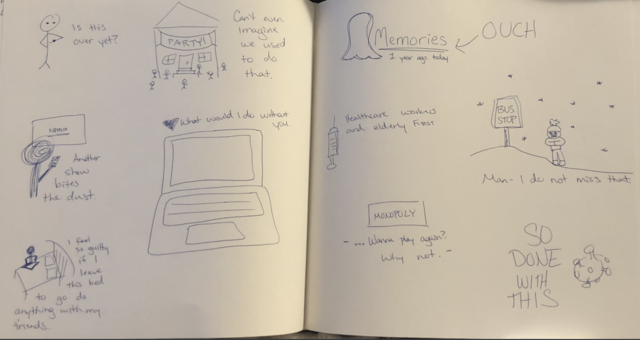 Is this
over yet?
PARTY!
Can't even
imagine
we used
to do
that.
Another
show
bites
the dust.
What would I do without
you.
I feel
so guilty
if I
leave
this bed
to go do
anything with my
friends.
Memories
1 year ago today
OUCH
Healthcare workers
and elderly first
BUS
STOP
Man- I do not miss that
MONOPOLY
- ... Wanna play again?
Why not. -
SO
DONE
WITH
THIS